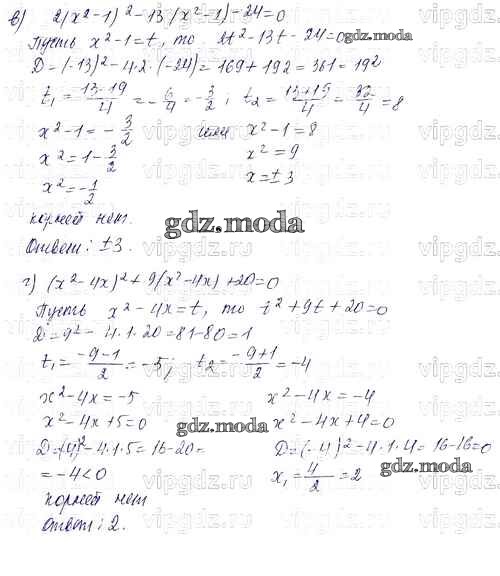 в) 2(x²-1)²-13(x²-1)-24=0
Пусть x²-1=t, то 2t²-13t-24=0
D=(-13)²-4·2·(-24)=169+192=361=19²
t₁=(13-19)/4=-6/4=-3/2; t₂=(13+19)/4=32/4=8
x²-1=-3/2 или x²-1=8
x²=1-3/2 x²=9
x²=-1/2 x=±3
корней нет.
gdz.moda
Ответ: ±3.
г) (x²-4x)²+9(x²-4x)+20=0
Пусть x²-4x=t, то t²+9t+20=0
D=9²-4·1·20=81-80=1
t₁=(-9-1)/2=-5; t₂=(-9+1)/2=-4
x²-4x=-5 x²-4x=-4
x²-4x+5=0 gdz.moda x²-4x+4=0
D=(4)²-4·1·5=16-20= D=(-4)²-4·1·4=16-16=0
=-4<0 x₁=4/2=2 gdz.moda
корней нет
Ответ: 2.
vipgdz.ru